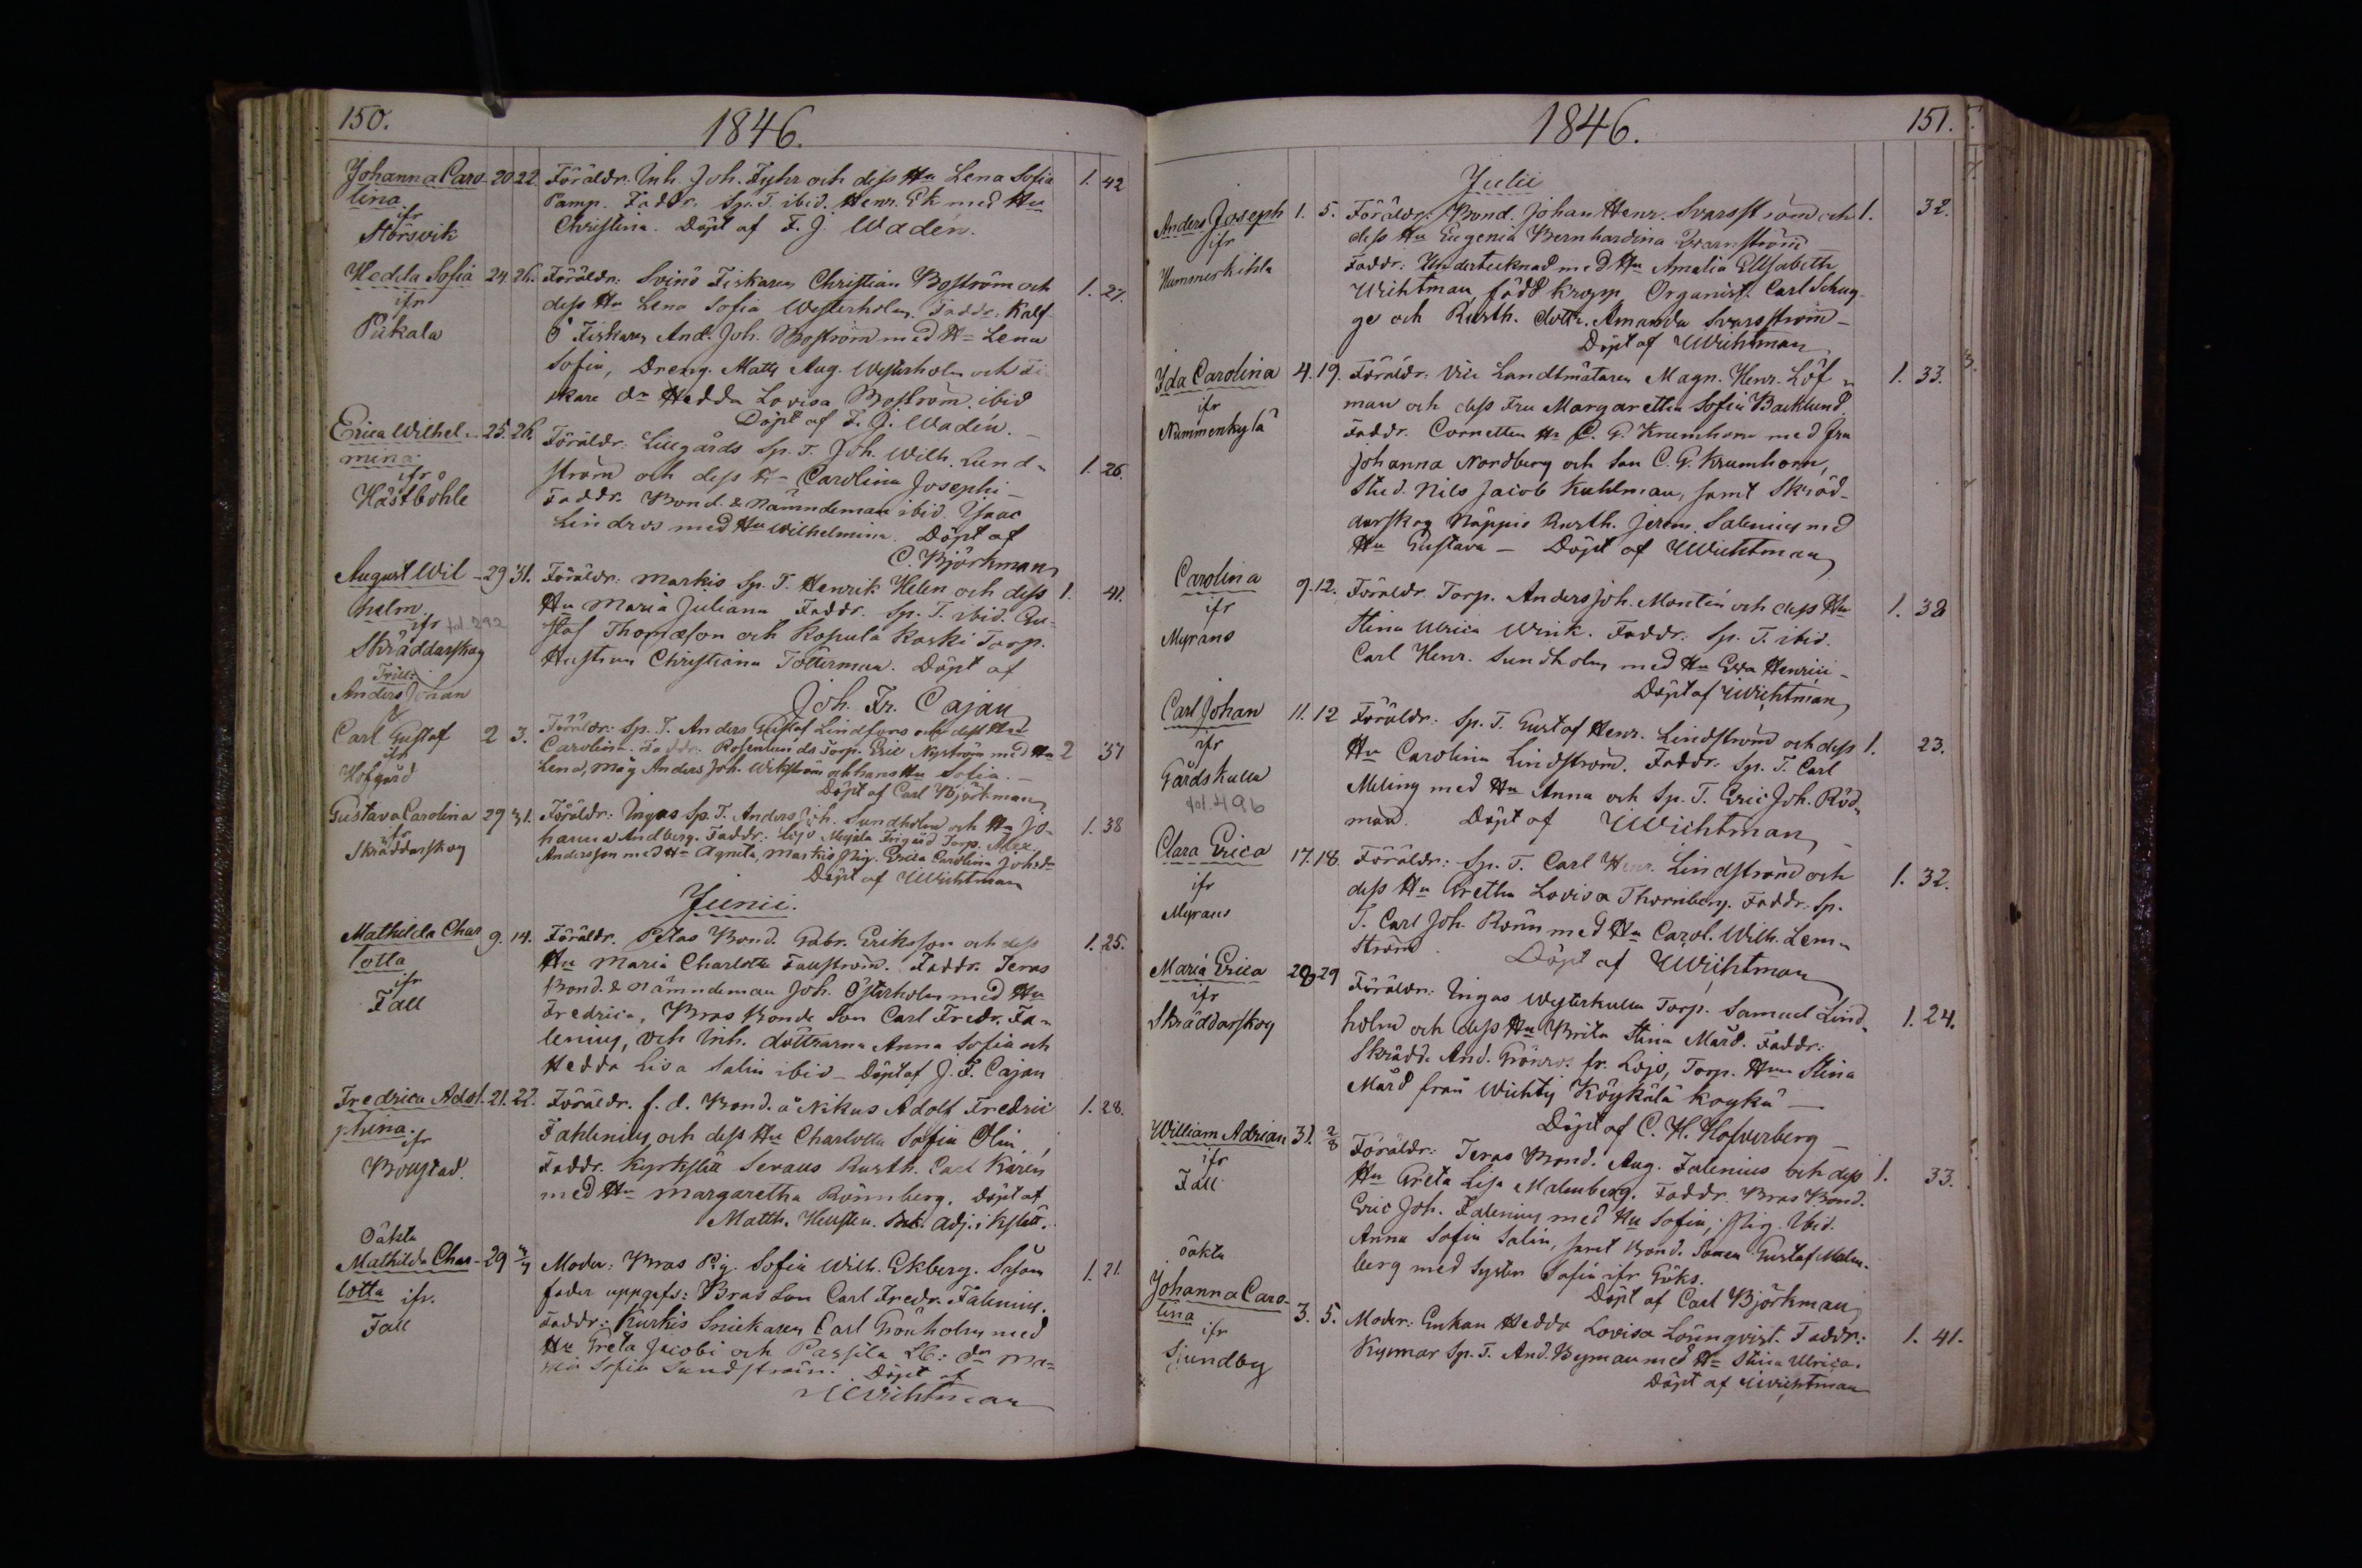 150.
1846.
Johanna Caro- 20 22. Föräldr. Inh. Joh. Fyhr och dess Hu Lena Sofia 1. 42
lina Pamp. Faddr. Sp. T. ibid. Henr. Ek med Hu
ifr Christina. Döpt af F. J. Wadén.
Störsvik
Hedda Sofia 24. 26. Föräldr: Svinö Fiskaren Christian Boström och 1. 27.
ifr dess Hu Lena Sofia Westerholm. Faddr. Kalf-
Pikala ö Fiskaren And. Joh. Boström med Hu Lena
Sofia, Dreng. Matts Aug. Westerholm och Fi-
skare dr Hedda Lovisa Boström ibid
Döpt af F. J. Wadén.
Erica Wilhel- 25. 26. Föräldr: Lillgårds Sp. T. Joh. Wilh. Lund- 1. 26.
mina ström och dess Hu Carolina Josephi-
ifr Faddr. Bond. & Nämndeman ibid. Isaac
Hästbohle Lindros med Hu Wilhelmina. Döpt af
C. Björkman
August Wil- 29 31. Föräldr: Markis Sp. T. Henrik Helen och dess 1. 41.
helm Hu Maria Juliana Faddr. Sp. T. ibid. Gu-
ifr fol. 292 staf Thomasson och Kopula Koski Torp.
Skräddarskog Hustrun Christiana Tötterman. Döpt af
Joh. Fr. Cajan
Trill:
Anders Johan
&
Carl Gustaf 2 3. Föräldr: Sp. T. Anders Gustaf Lindfors och dess Hu 2 37
ifr Carolina. Faddr. Rosenlunds Torp. Eric Nyström med Hu
Hofgård Lena, Måg Anders Joh. Wikström och hans Hu Sofia.
Döpt af Carl Björkman
Gustava Carolina 29 31. Föräldr: Ingas Sp. T. Anders Joh. Sundholm och Hu Jo- 1. 38
ifr hanna Andberg. Faddr: Lojo Torp. Alex.
Skräddarskog Andersson med Hu Agneta, Markis Pig. Erica Carolina Johsdr
Döpt af Wichtman
Junii.
Mathilda Char 9. 14. Föräldr. Petas Bond. Gabr. Eriksson och dess 1. 25.
lotta Hu Maria Charlotta Fauström. Faddr. Jeras
ifr Bond. & Nämndeman Joh. Österholm med Hu
Fall Fredrica, Bras Bonde Son Carl Fredr. Fa-
lenius, och Inh. döttrarna Anna Sofia och
Hedda Lisa Salin ibid - Döpt af J. F. Cajan
Fredrica Adol 21. 22. Föräldr. f. d. Bond. å Nikus Adolf Fredric 1. 28.
phina. Fahlenius och dess Hu Charlotta Sofia Olin
ifr Faddr. Kyrkslätt Serans Rusth. Carl Kärén
Bollstad. med Hu Margaretha Rönnberg. Döpt af
Matth. Hellsten. Adj. i Kyslätt.
Oäkta
Mathilda Char- 29 3/7 Moder: Bras Pig. Sofia Wilh. Ekberg. Såsom 1. 21.
lotta ifr. fader uppgafs: Bras Son Carl Fredr. Falenius.
Fall Faddr: Kurkis Snickaren Carl Grönholm med
Hu Greta Jacobi och Passila dr Ma-
ria Sofia Sundström. Döpt af
Wichtman
1846.
151.
Julii
Anders Joseph 1. 5. Föräldr: Bond. Johan Henr. Svarsström och 1. 32.
ifr dess Hu Eugenia Bernhardina Qvarnström
Hummerkihla Faddr: Undertecknad med Hu Amalia Elisabeth
Wichtman, född Kropp, Organist. Carl Schug-
ge och Rusth. dottr. Amanda Svarsström -
Döpt af Wichtman
Ida Carolina 4. 19. Föräldr: Vice Landtmätaren Magn. Henr. Löf- 1. 33.
ifr man och dess Fru Margaretha Sofia Backlund.
Nummenkylä Faddr. Cornetten Hr C. G. Krumhorn med Fru
Johanna Nordberg och Son C. G. Krumhorn,
Stud. Nils Jacob Kuhlman, samt Skräd-
darskog Näppis Rusth. Jerem. Salenius med
Hu Gustava - Döpt af Wichtman
Carolina 9. 12. Föräldr. Torp. Anders Joh. Montén och dess Hu 1. 38
ifr Stina Ulrica Wink. Faddr: Sp. T. ibid.
Myrans Carl Henr. Sundholm med Hu Eva Henrici -
Döpt af Wichtman
Carl Johan 11. 12 Föräldr: Sp. T. Gustaf Henr. Lindström och dess 1. 23.
ifr Hu Carolina Lindström. Faddr. Sp. T. Carl
Gårdskulla Meling med Hu Anna och Sp. T. Eric Joh. Röd-
fol. 496 man. Döpt af Wichtman
Clara Erica 17. 18. Föräldr: Sp. T. Carl Henr. Lindström och 1. 32.
ifr dess Hu Gretha Lovisa Thornberg. Faddr. Sp.
Myrans T. Carl Joh. Rönn med Hu Carol. Wilh. Lem-
ström. Döpt af Wichtman
Maria Erica 28 29 Föräldr: Ingas Westerkulla Torp. Samuel Lind- 1. 24.
ifr holm och dess Hu Brita Stina Mård. Faddr:
Skräddarskog Skrädd. And. Grönros fr. Lojo, Torp. Hun Stina
Mård från Wichtis Köykälä
Döpt af C. H. Hofverberg
William Adrian 31. 2/8 Föräldr: Jeras Bond. Aug. Falenius och dess 1. 33.
ifr Hu Greta Lisa Malmberg. Faddr. Bras Bond.
Fall Eric Joh. Falenius med Hu Sofia, Pig. Ibid.
Anna Sofia Salin, samt Bond. Sonen Gustaf Malm-
berg med Syster Sofia ifr Göks.
Döpt af Carl Björkman
oäkta
Johanna Caro- 3. 5. Moder: Enkan Hedda Lovisa Lönnqvist. Faddr: 1. 41.
lina Kynnar Sp. T. And. Byman med Hu Stina Ulrica.
ifr Döpt af Wichtman
Sjundby